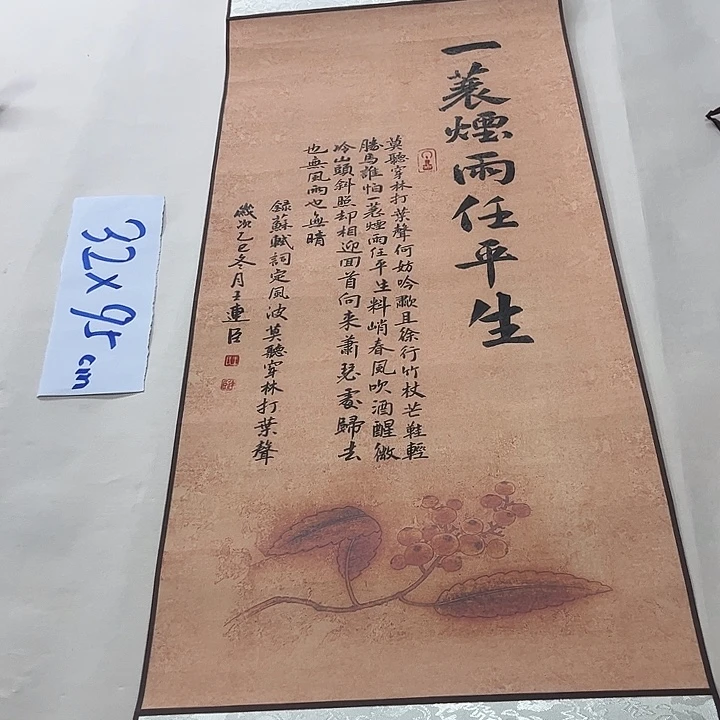 一蓑煙雨任平生
莫聽穿林打葉聲何妨吟歌且徐行竹杖芒鞋輕
勝馬誰怕一蓑煙雨任平生料峭春風吹酒醒微
冷山頭斜照却相迎回首向来蕭瑟處歸去
也無風雨也無晴
録蘇軾詞定風波莫聽穿林打葉聲
歲次乙巳冬月王連臣
32x95cm